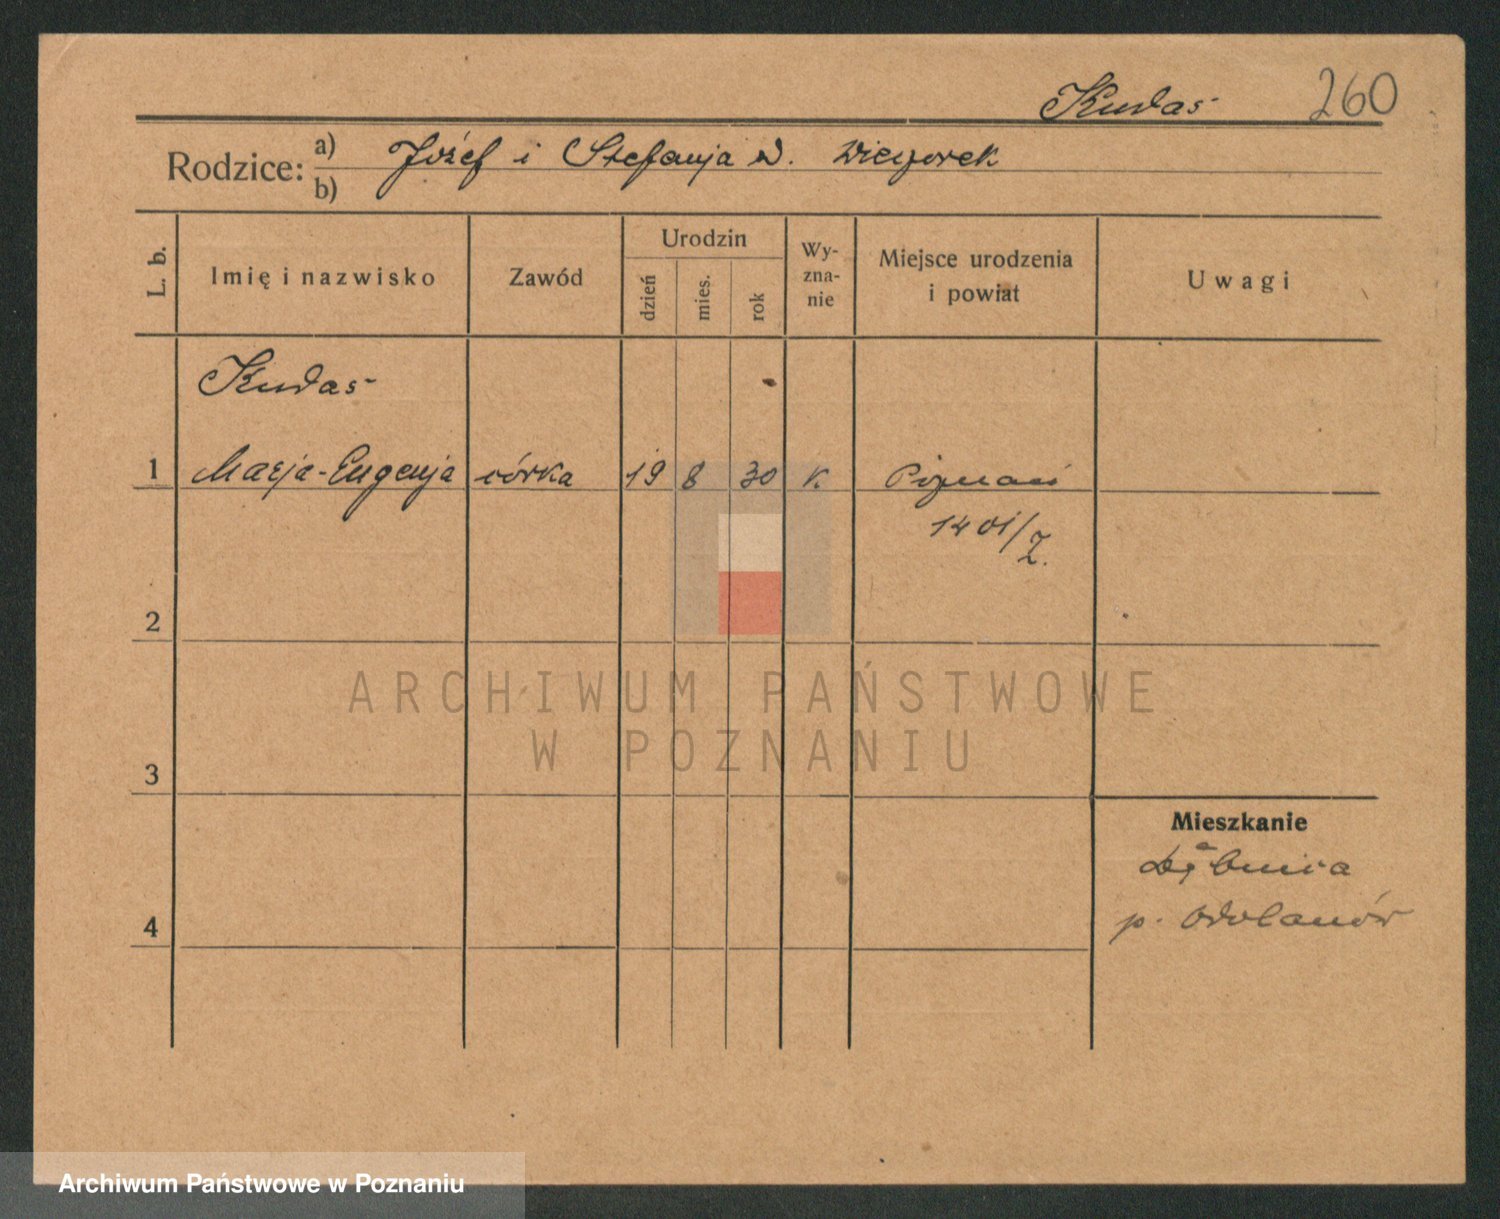 Kudas 260
Rodzice: a) Józef i Stefanja d. Wieczorek
b)
L. b. Imię i nazwisko Zawód Urodzin dzień mies. rok Wyznanie Miejsce urodzenia i powiat Uwagi
Kudas
1 Marja-Eugenja córka 19 8 30 k. Poznań
1401/Z.
2
ARCHIWUM PAŃSTWOWE
W POZNANIU
3
Mieszkanie
Dębnica
p. Odolanów
4
Archiwum Państwowe w Poznaniu